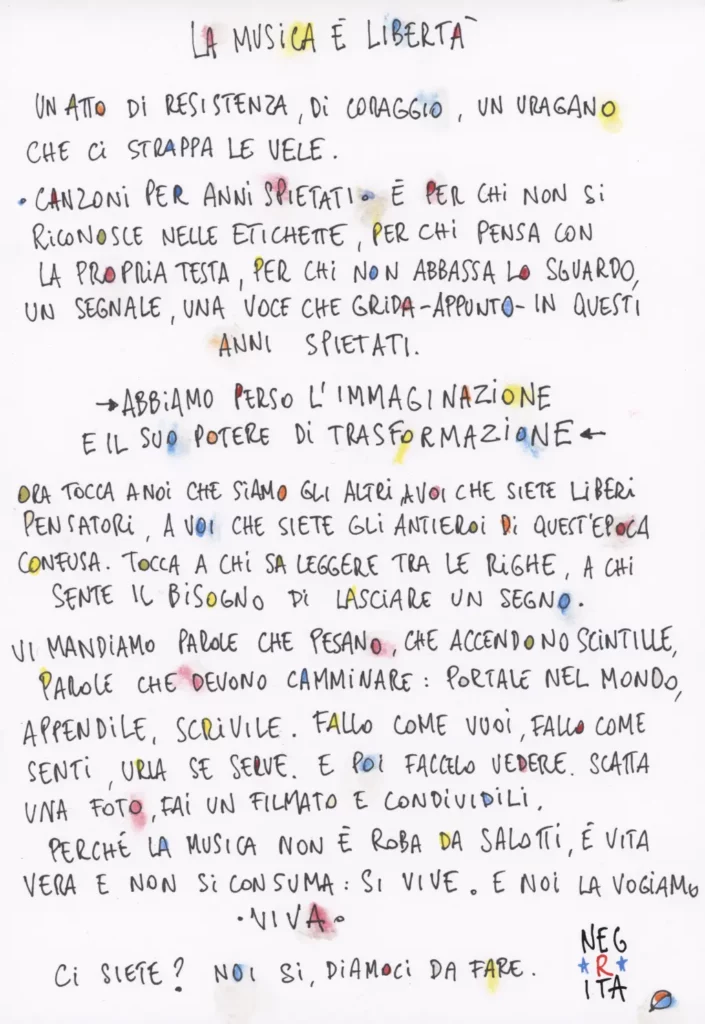 LA MUSICA È LIBERTÀ
UN ATTO DI RESISTENZA, DI CORAGGIO, UN URAGANO
CHE CI STRAPPA LE VELE.
·CANZONI PER ANNI SPIETATI· È PER CHI NON SI
RICONOSCE NELLE ETICHETTE, PER CHI PENSA CON
LA PROPRIA TESTA, PER CHI NON ABBASSA LO SGUARDO,
UN SEGNALE, UNA VOCE CHE GRIDA-APPUNTO-IN QUESTI
ANNI SPIETATI.
→ABBIAMO PERSO L'IMMAGINAZIONE
E IL SUO POTERE DI TRASFORMAZIONE←
ORA TOCCA A NOI CHE SIAMO GLI ALTRI, A VOI CHE SIETE LIBERI
PENSATORI, A VOI CHE SIETE GLI ANTIEROI DI QUEST'EPOCA
CONFUSA. TOCCA A CHI SA LEGGERE TRA LE RIGHE, A CHI
SENTE IL BISOGNO DI LASCIARE UN SEGNO.
VI MANDIAMO PAROLE CHE PESANO, CHE ACCENDONO SCINTILLE,
PAROLE CHE DEVONO CAMMINARE: PORTALE NEL MONDO,
APPENDILE, SCRIVILE. FALLO COME VUOI, FALLO COME
SENTI, URLA SE SERVE. E POI FACCELO VEDERE. SCATTA
UNA FOTO, FAI UN FILMATO E CONDIVIDILI.
PERCHÉ LA MUSICA NON È ROBA DA SALOTTI, È VITA
VERA E NON SI CONSUMA: SI VIVE. E NOI LA VOGIAMO
·VIVA·
CI SIETE? NOI SI, DIAMOCI DA FARE.
NEG
★R★
ITA